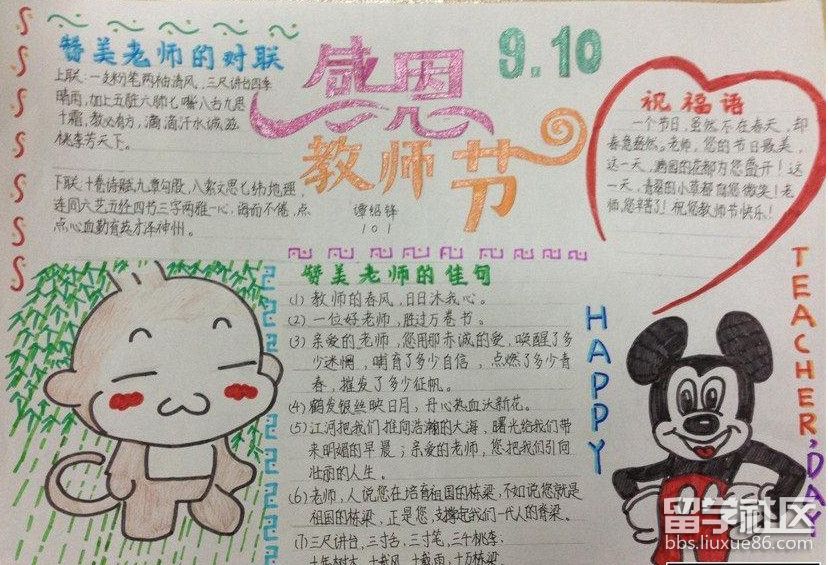 赞美老师的对联
上联：一支粉笔两袖清风，三尺讲台四季
晴雨，加上五脏六腑七嘴八舌九思
十霜，教必有方，滴滴汗水诚滋
桃李芳天下。
下联：十卷诗赋九章勾股，八索文思七纬地理，
连同六艺五经四书三字两雅一心，诲而不倦，点
点心血勤育英才泽神州。
感恩
教师节
9.10
101
祝福语
一个节日，虽然不在春天，却
老师，您的节日最美，
这一天，满园的花都为您盛开！这
一天，青翠的小草都向您微笑！老
师，您辛苦了！祝您教师节快乐！
赞美老师的佳句
(1) 教师的春风，日日沐我心。
(2) 一位好老师，胜过万卷书。
(3) 亲爱的老师，您用那赤诚的爱，唤醒了多
少迷惘，哺育了多少自信，点燃了多少青
春，摧发了多少征帆。
(4) 鹤发银丝映日月，丹心热血沃新花。
(5) 江河把我们推向浩瀚的大海，曙光给我们带
来明媚的早晨；亲爱的老师，您把我们引向
壮丽的人生。
(6) 老师，人说您在培育祖国的栋梁，不如说您就是
祖国的栋梁，正是您，支撑起我们一代人的脊梁。
(7) 三尺讲台，三寸舌，三寸笔，三千桃李；
十年树木，十载风，十载雨，十万栋梁。
HAPPY
TEACHER'DAY
留学社区
bbs.liuxue86.com